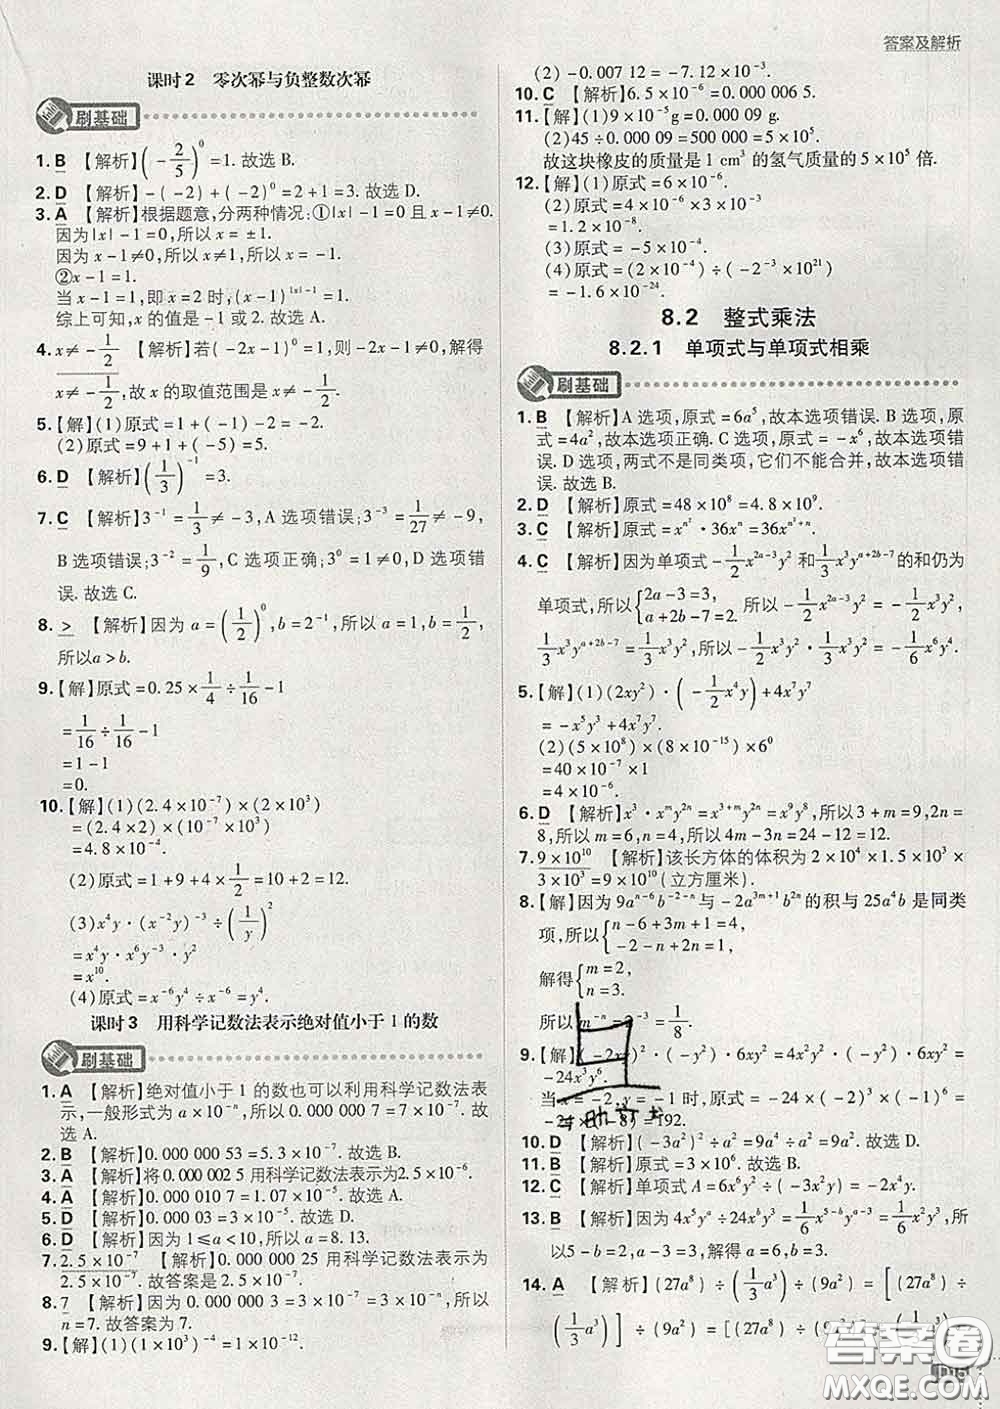 答案及解析
课时2 零次幂与负整数次幂
刷基础
1. B 【解析】(-2/5)^0=1. 故选 B.
2. D 【解析】-(-2)+(-2)^0=2+1=3. 故选 D.
3. A 【解析】根据题意,分两种情况:①|x|-1=0且x-1≠0.
因为|x|-1=0,所以 x=±1.
因为 x-1≠0,所以 x=-1.
②x-1=1.
当 x-1=1,即 x=2 时,(x-1)^(|x|-1)=1.
综上可知,x 的值是-1 或 2. 故选 A.
4. x≠-1/2 【解析】若(-2x-1)^0=1,则-2x-1≠0,解得
x≠-1/2,故 x 的取值范围是 x≠-1/2.
5.【解】(1)原式=1+(-1)-2=-2.
(2)原式=9+1+(-5)=5.
6. D 【解析】(1/3)^-1=3.
7. C 【解析】3^-1=1/3≠-3,A 选项错误;3^-3=1/27≠-9,
B 选项错误;3^-2=1/9,C 选项正确;3^0=1≠0,D 选项错
误. 故选 C.
8. > 【解析】因为 a=(1/2)^0,b=2^-1,所以 a=1,b=1/2,
所以a>b.
9.【解】原式=0.25×1/4÷1/16-1
=1/16÷1/16-1
=1-1
=0.
10.【解】(1)(2.4×10^-7)×(2×10^3)
=(2.4×2)×(10^-7×10^3)
=4.8×10^-4.
(2)原式=1+9+4×1/2=10+2=12.
(3)x^4y·(x^-2y)^-3÷(1/y)^2
=x^4y·x^6y^-3·y^2
=x^10.
(4)原式=x^-6y^4÷x^-6=y^4.
课时3 用科学记数法表示绝对值小于1的数
刷基础
1. A 【解析】绝对值小于 1 的数也可以利用科学记数法表
示,一般形式为 a×10^-n,所以0.000 000 7=7×10^-7. 故
选 A.
2. B 【解析】0.000 000 53=5.3×10^-7. 故选 B.
3. A 【解析】将0.000 002 5 用科学记数法表示为2.5×10^-6.
4. A 【解析】0.000 010 7=1.07×10^-5. 故选 A.
5. D 【解析】0.000 03=3×10^-5. 故选 D.
6. D 【解析】因为 1≤a<10,所以 a=8.13.
7. 2.5×10^-7 【解析】0.000 000 25 用科学记数法表示为
2.5×10^-7. 故答案是2.5×10^-7.
8. 7 【解析】因为 0.000 000 3=3×10^-7=3×10^-n,所以
n=7. 故答案为 7.
9.【解】(1)(10^3)^-4=1×10^-12.
(2)-0.007 12=-7.12×10^-3.
10. C 【解析】6.5×10^-6=0.000 006 5.
11.【解】(1)9×10^-5g=0.000 09 g.
(2)45÷0.000 09=500 000=5×10^5.
故这块橡皮的质量是 1 cm^3 的氢气质量的 5×10^5 倍.
12.【解】(1)原式=6×10^-6.
(2)原式=4×10^-6×3×10^-3
=1.2×10^-8.
(3)原式=-5×10^-4.
(4)原式=(2×10^-4)÷(-2^-3×10^21)
=1.6×10^-24.
8.2 整式乘法
8.2.1 单项式与单项式相乘
刷基础
1. B 【解析】A 选项,原式=6a^5,故本选项错误. B 选项,原
式=4a^2,故本选项正确. C 选项,原式=-x^6,故本选项错
误. D 选项,两式不是同类项,它们不能合并,故本选项错
误. 故选 B.
2. D 【解析】原式=48×10^8=4.8×10^9.
3. C 【解析】原式=x^(n^2)·36x^n=36x^(n^2+n).
4. C 【解析】因为单项式-1/2x^(2a-3)y^2和1/3x^3y^(a+2b-7)的和仍为
单项式,所以{2a-3=3, a+2b-7=2. 所以-1/2x^(2a-3)y^2=-1/2x^3y^2,
1/3x^3y^(a+2b-7)=1/3x^3y^2,所以-1/2x^3y^2·1/3x^3y^2=-1/6x^6y^4.
5.【解】(1)(2xy^2)·(-1/2x^4y)+4x^7y^7
=-x^5y^3+4x^7y^7.
(2)(5×10^8)×(8×10^-15)×6^0
=40×10^-7×1
=4×10^-6.
6. D 【解析】x^3·x^my^2n=x^(3+m)y^2n=x^9y^8,所以3+m=9,2n=
8,所以 m=6,n=4,所以 4m-3n=24-12=12.
7. 9×10^10 【解析】该长方体的体积为 2×10^4×1.5×10^3×
3×10^3=9×10^10(立方厘米).
8.【解】因为9a^(n-6)b^(-2-n)与-2a^(3m+1)b^2n的积与25a^4b 是同类
项,所以{n-6+3m+1=4, -2-n+2n=1,
解得{m=2, n=3.
所以 m^-n=2^-3=1/8.
9.【解】(-2xy)^2·(-y^2)·6xy^2=4x^2y^2·(-y^2)·6xy^2=
-24x^3y^6.
当 x=-2,y=-1 时,原式=-24×(-2)^3×(-1)^6=
-24×(-8)=192.
10. D 【解析】(-3a^2)^2÷a^2=9a^4÷a^2=9a^2. 故选 D.
11. B 【解析】原式=3×10^6. 故选 B.
12. C 【解析】单项式 A=6x^6y^2÷(-3x^4y)=-2x^2y.
13. B 【解析】因为 4x^5y^a÷24x^by^3=1/6x^(5-b)y^(a-3)=1/6x^3,所
以5-b=2,a-3=3,解得 a=6,b=3.
14. A 【解析】(27a^8)÷(1/3a^3)÷(9a^2)=[(27a^8)÷
(1/3a^3)]÷(9a^2)=[(27÷1/3)
答案圈
MXQE.COM
D15